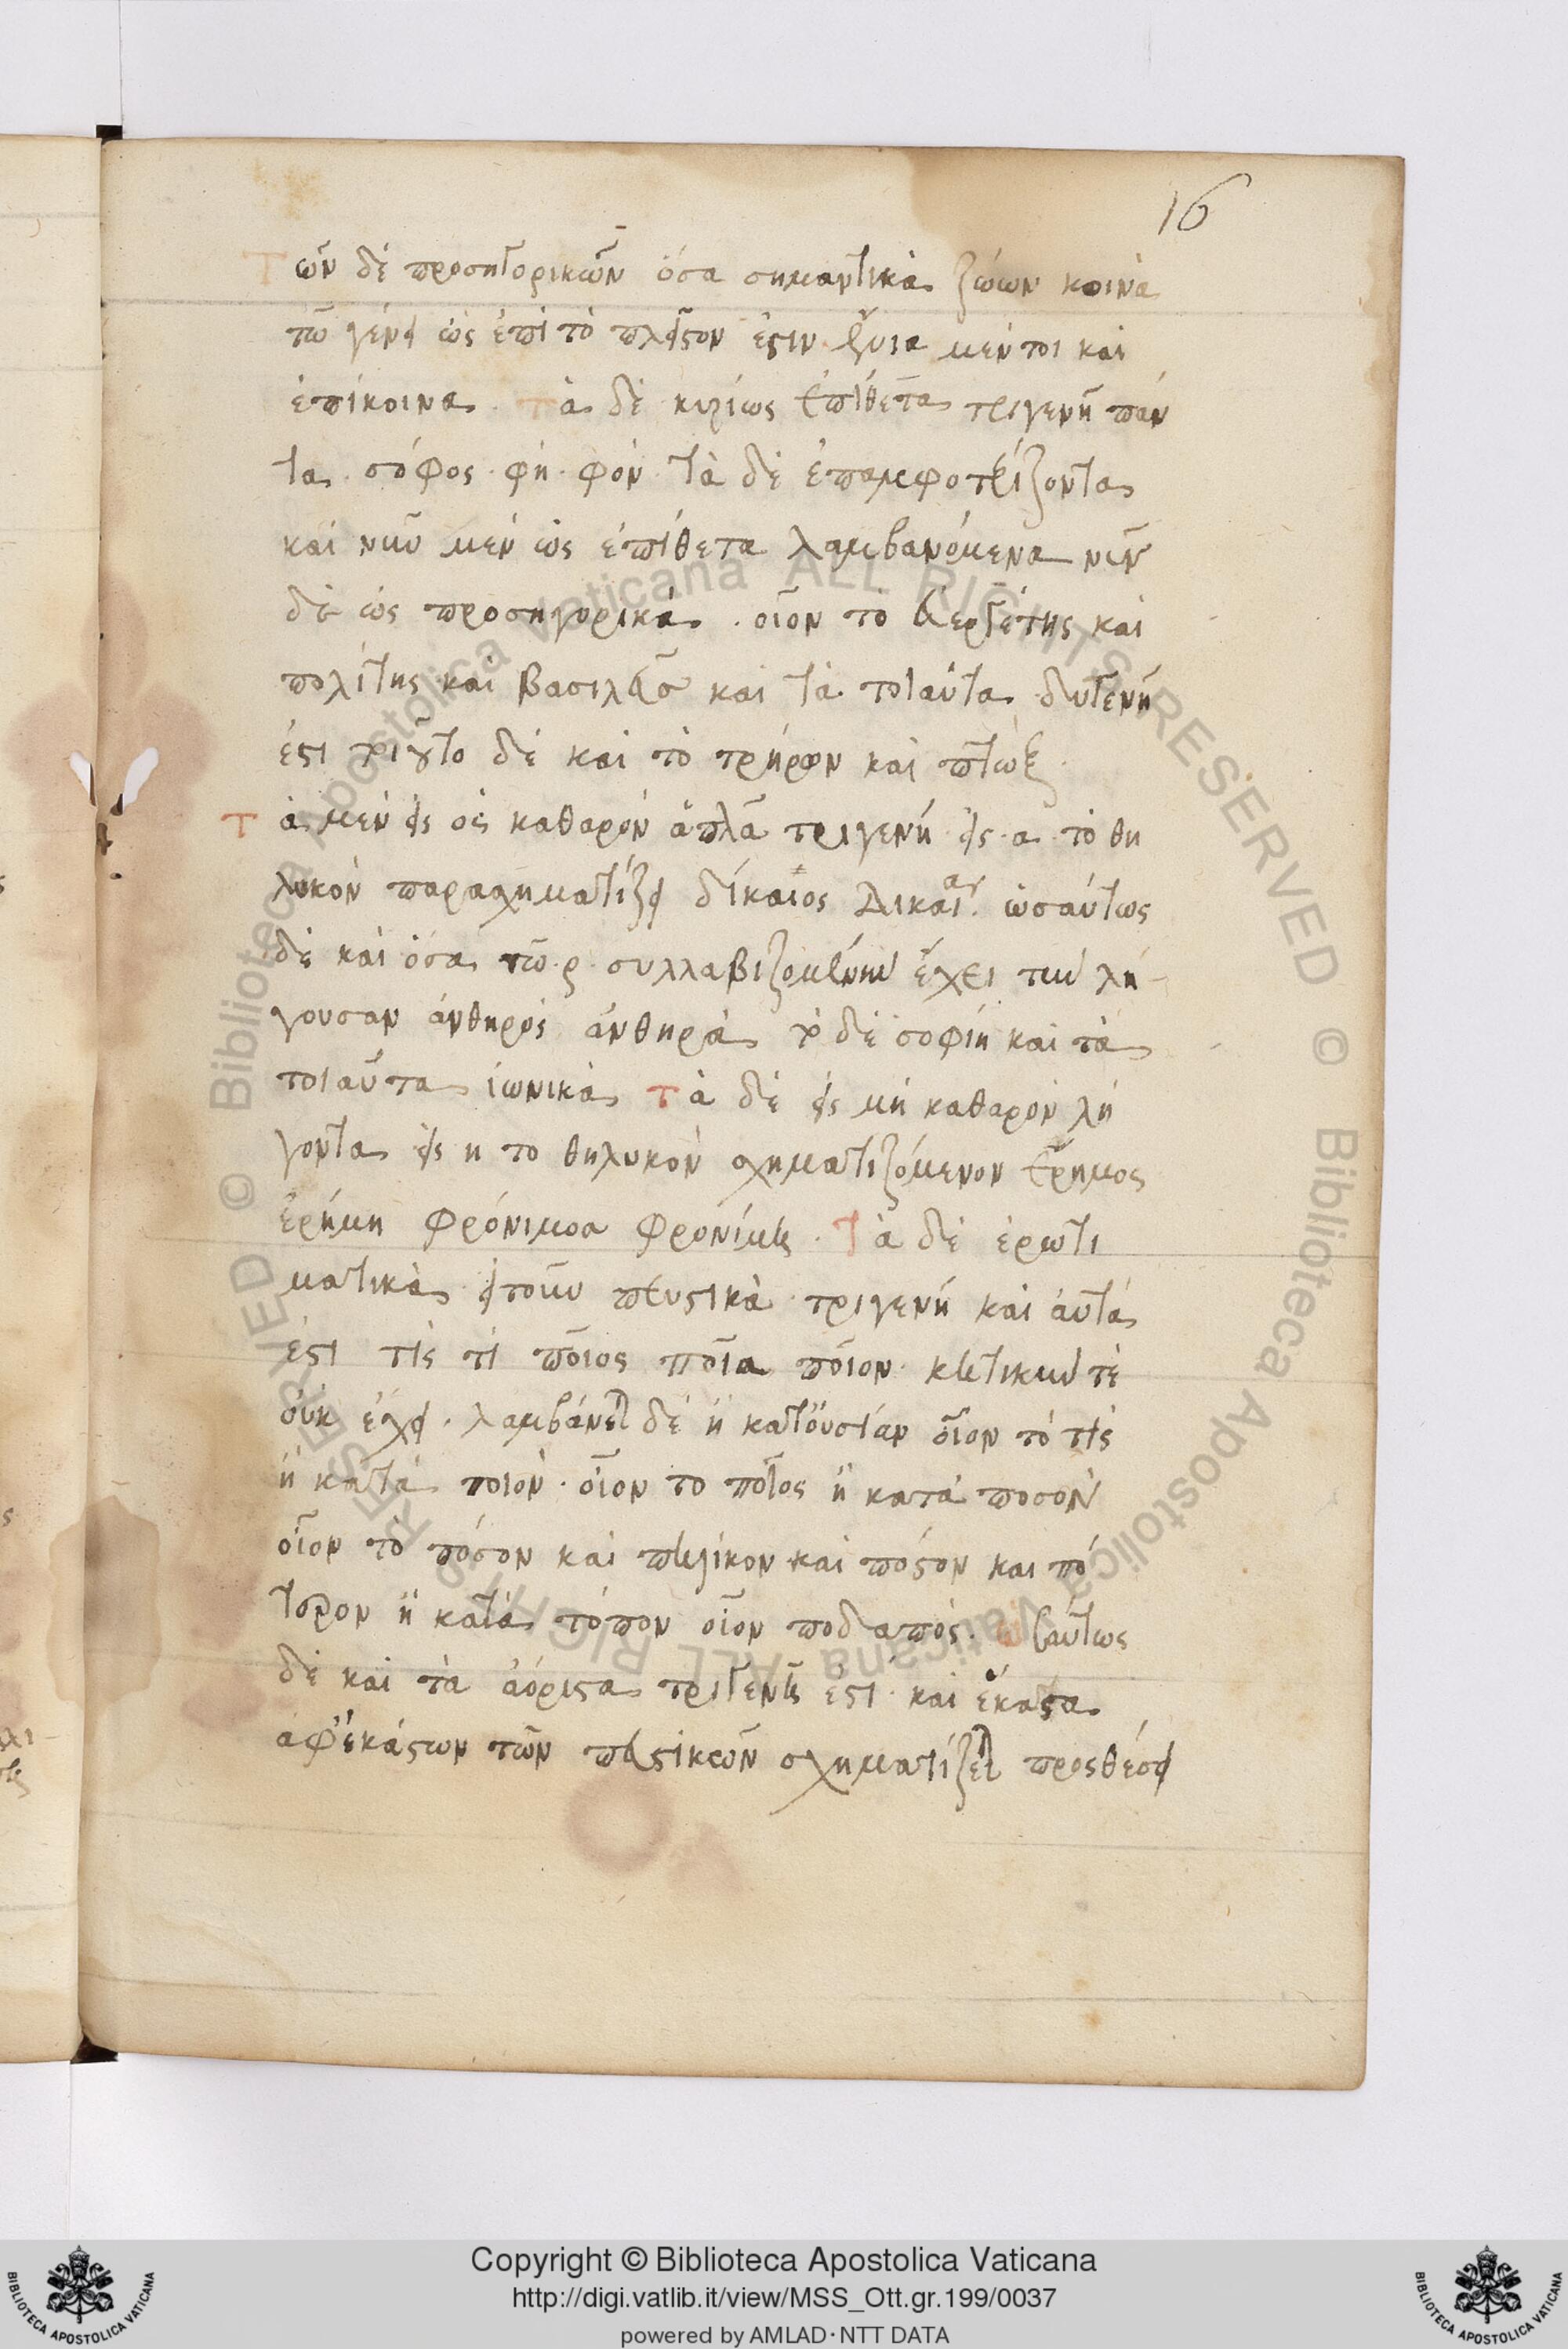 16
Τῶν δὲ προσηγορικῶν ὅσα σημαντικὰ ζώων κοινὰ
τῶ γένει ὡς ἐπὶ τὸ πλεῖστον ἐστιν ἔνια μέν τοι καὶ
ἐπίκοινα. τὰ δὲ κυρίως ἐπίθετα τριγενῆ πάν
τα. σόφος. φή. φόν. τὰ δὲ ἐπαμφοτερίζοντα
καὶ νῦν μὲν ὡς ἐπίθετα λαμβανόμενα νῦν
δὲ ὡς προσηγορικά. οἷον τὸ εὐεργέτης καὶ
πολίτης καὶ βασιλεὺς καὶ τὰ τοιαῦτα. δυγενῆ
ἐστι τοιοῦτο δὲ καὶ τὸ τρήρων καὶ πτώξ.
Τὰ μὲν εἰς ος καθαρὸν ἁπλᾶ τριγενῆ. εἰς. α. τὸ θη
λυκὸν παρασχηματίζει δίκαιος δικαία. ὡσαύτως
δὲ καὶ ὅσα τῶ. ρ. συλλαβιζομένην ἔχει τὴν λή
γουσαν ἀνθηρὸς ἀνθηρὰ τὸ δὲ σοφίη καὶ τὰ
τοιαῦτα ἰωνικὰ τὰ δὲ εἰς μὴ καθαρὸν λή
γοντα εἰς η το θηλυκὸν σχηματιζόμενον ἔρημος
ἐρήμη φρόνιμοσ φρονίμη. Τὰ δὲ ἐρωτι
ματικὰ εἴτουν πευστικὰ τριγενῆ καὶ αὐτά
ἐστι τίς τί ποῖος ποῖα ποῖον. κλητικήν τὲ
οὐκ ἔχει. λαμβάνεται δὲ ἢ κατ' οὐσίαν οἷον τό τίς
ἢ κατὰ ποιόν. οἷον το ποῖος ἢ κατὰ ποσὸν
οἷον τὸ πόσον καὶ πηλίκον καὶ πόστον και πό
τερον ἢ κατὰ τόπον οἷον ποδαπός. ὡσαύτως
δὲ καὶ τὰ ἀόριστα τριγενῆ ἐστι. καὶ ἕκαστα
ἀφ' ἑκάστων τῶν πευστικῶν σχηματίζεται προσθέσει
Copyright © Biblioteca Apostolica Vaticana
http://digi.vatlib.it/view/MSS_Ott.gr.199/0037
powered by AMLAD·NTT DATA
BIBLIOTECA APOSTOLICA VATICANA
BIBLIOTECA APOSTOLICA VATICANA
© Biblioteca Apostolica Vaticana ALL RIGHTS RESERVED
© Biblioteca Apostolica Vaticana ALL RIGHTS RESERVED